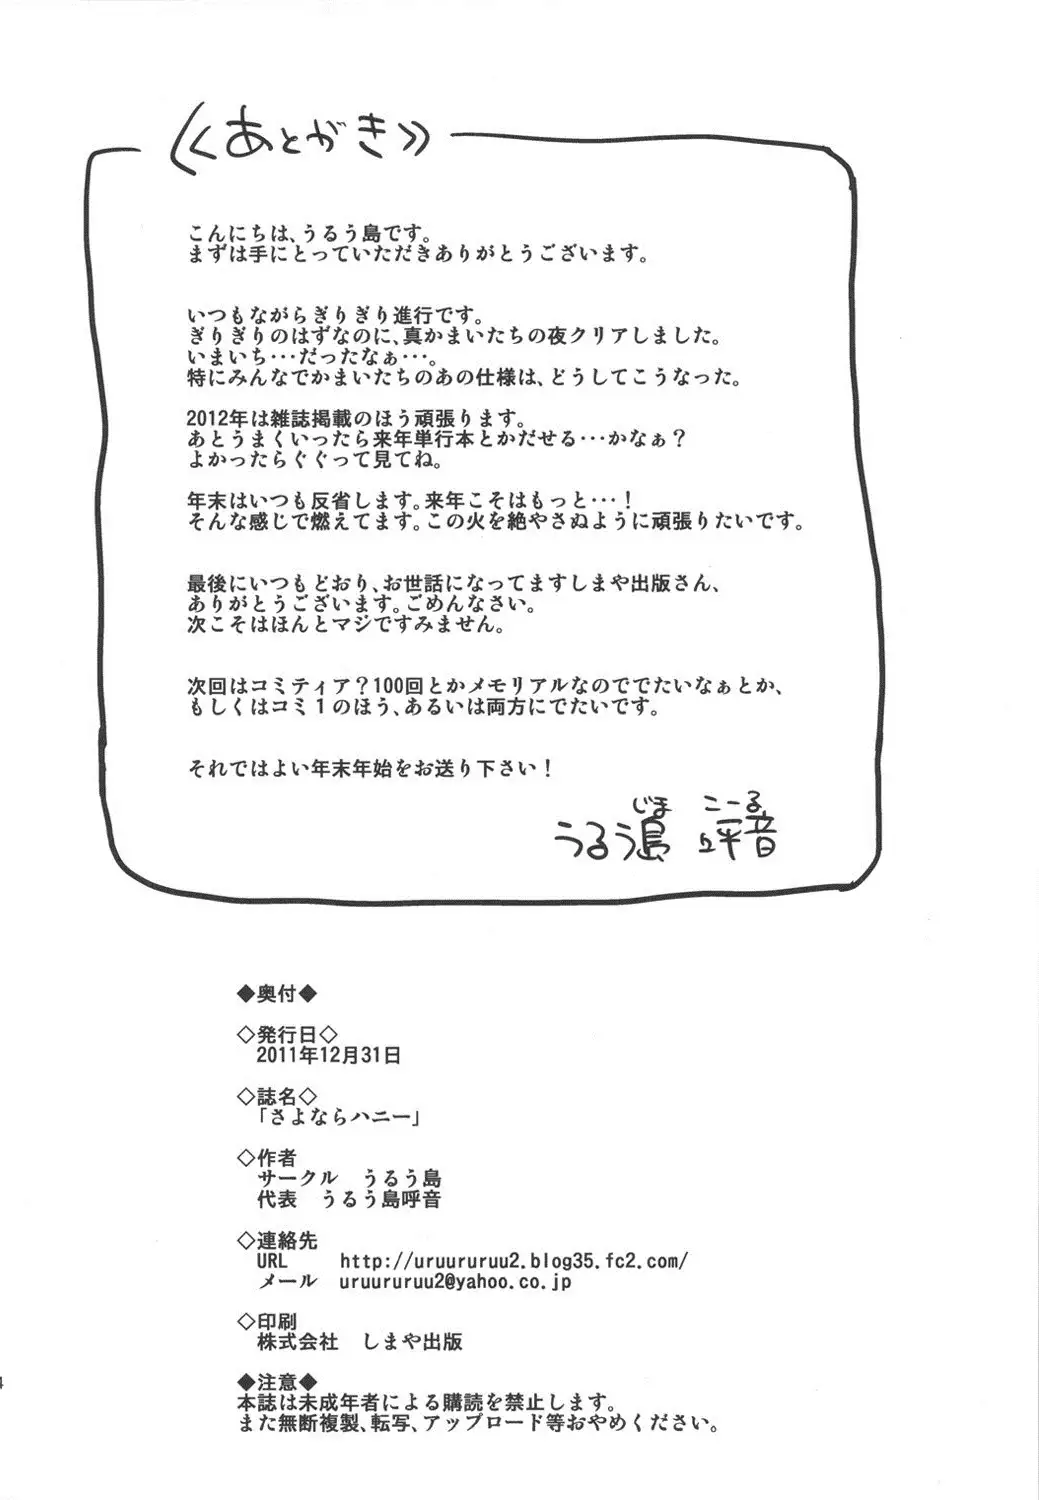 ≪あとがき≫
こんにちは、うるう島です。
まずは手にとっていただきありがとうございます。
いつもながらぎりぎり進行です。
ぎりぎりのはずなのに、真かまいたちの夜クリアしました。
いまいち･･･だったなぁ･･･。
特にみんなでかまいたちのあの仕様は、どうしてこうなった。
2012年は雑誌掲載のほう頑張ります。
あとうまくいったら来年単行本とかだせる･･･かなぁ？
よかったらぐぐって見てね。
年末はいつも反省します。来年こそはもっと･･･！
そんな感じで燃えてます。この火を絶やさぬように頑張りたいです。
最後にいつもどおり、お世話になってますしまや出版さん、
ありがとうございます。ごめんなさい。
次こそはほんとマジですみません。
次回はコミティア？100回とかメモリアルなのででたいなぁとか、
もしくはコミ１のほう、あるいは両方にでたいです。
それではよい年末年始をお送り下さい！
じま こーる
うるう島 呼音
◆奥付◆
◇発行日◇
2011年12月31日
◇誌名◇
「さよならハニー」
◇作者
サークル　うるう島
代表　うるう島呼音
◇連絡先
URL　http://uruururuu2.blog35.fc2.com/
メール　uruururuu2@yahoo.co.jp
◇印刷
株式会社　しまや出版
◆注意◆
本誌は未成年者による購読を禁止します。
また無断複製、転写、アップロード等おやめください。
4